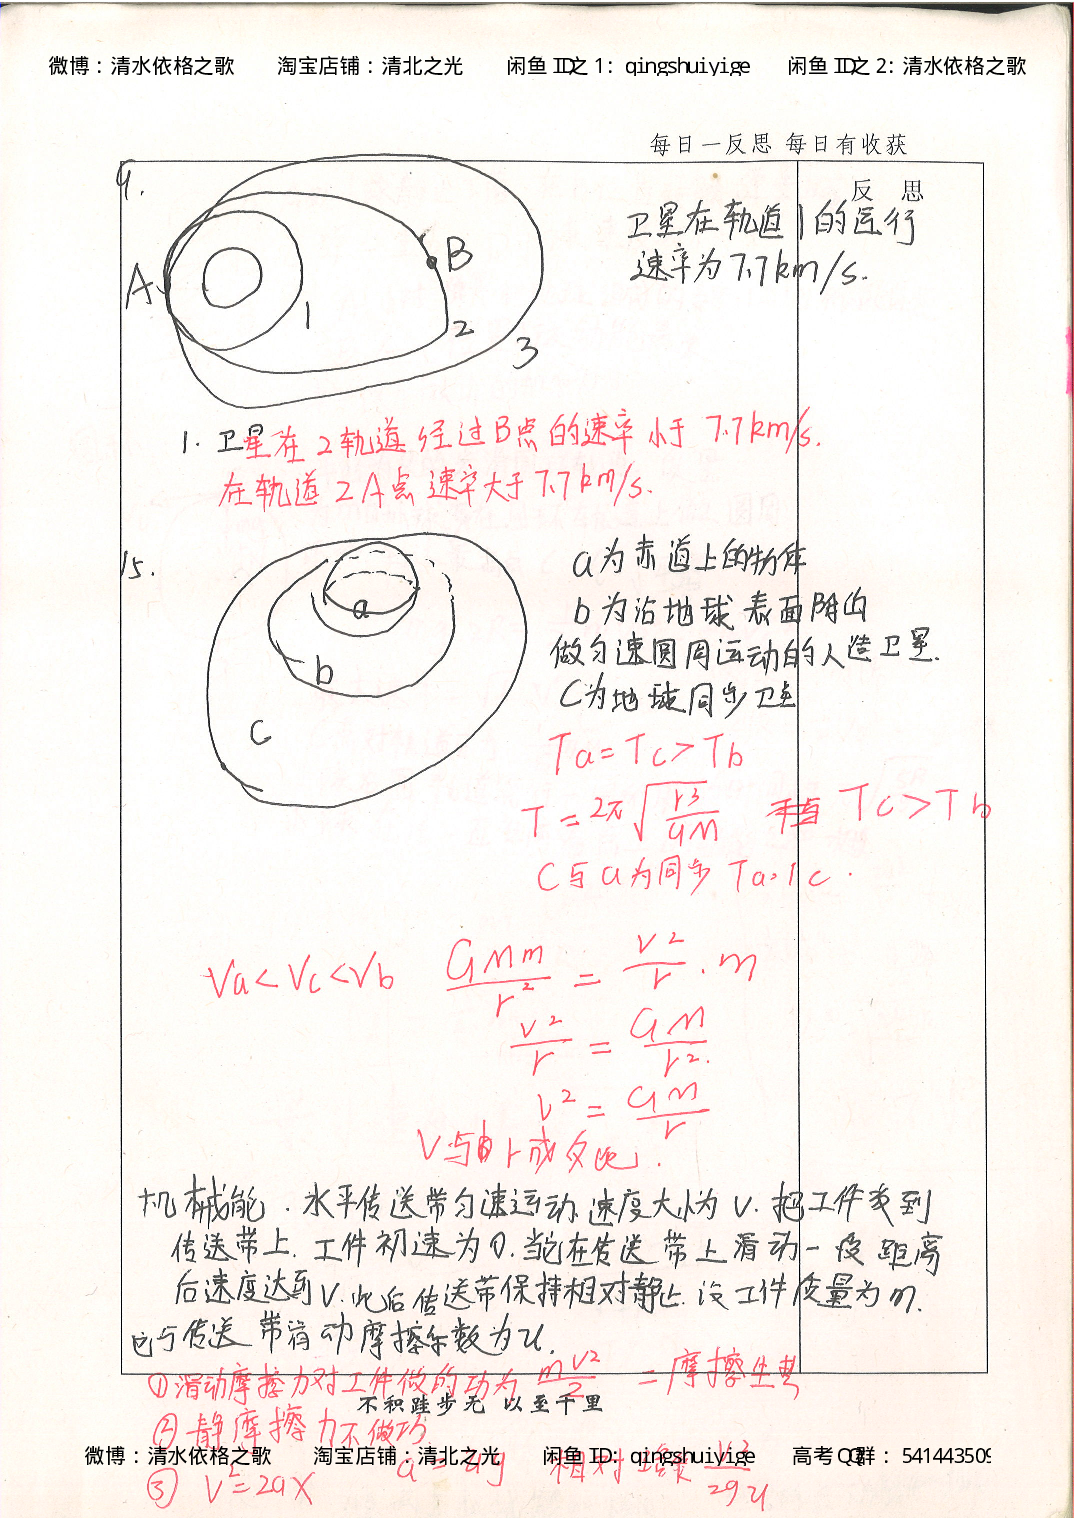 微博：清水依格之歌 淘宝店铺：清北之光 闲鱼 ID之 1: qingshuiyige 闲鱼 ID之 2: 清水依格之歌
每日一反思 每日有收获
反 思
9.
卫星在轨道1的运行
速率为7.7km/s.
A
B
1
2
3
1. 卫星在2轨道经过B点的速率小于7.7km/s.
在轨道2A点速率大于7.7km/s.
15.
a
b
c
a为赤道上的物体
b为沿地球表面附近
做匀速圆周运动的人造卫星.
C为地球同步卫星
Ta=Tc>Tb
T=2π√(r³/GM) Tc>Tb
C与a为同步 Ta=Tc.
Va<Vc<Vb GMm/r²=v²/r·m
v²/r=GM/r².
v²=GM/r
V与r成反比.
机械能．水平传送带匀速运动.速度大小为v.把工件放到
传送带上.工件初速为0.当它在传送带上滑动一段距离
后速度达到V.此后传送带保持相对静止.设工件质量为m.
它与传送带滑动摩擦系数为u.
①滑动摩擦力对工件做的功为mv²/2=摩擦生热
不积跬步无以至千里
②静摩擦力不做功
微博：清水依格之歌 淘宝店铺：清北之光 闲鱼 ID: qingshuiyige 高考 QQ群： 541443509
③ v²=2ax a=ug 相对 v²/2gu